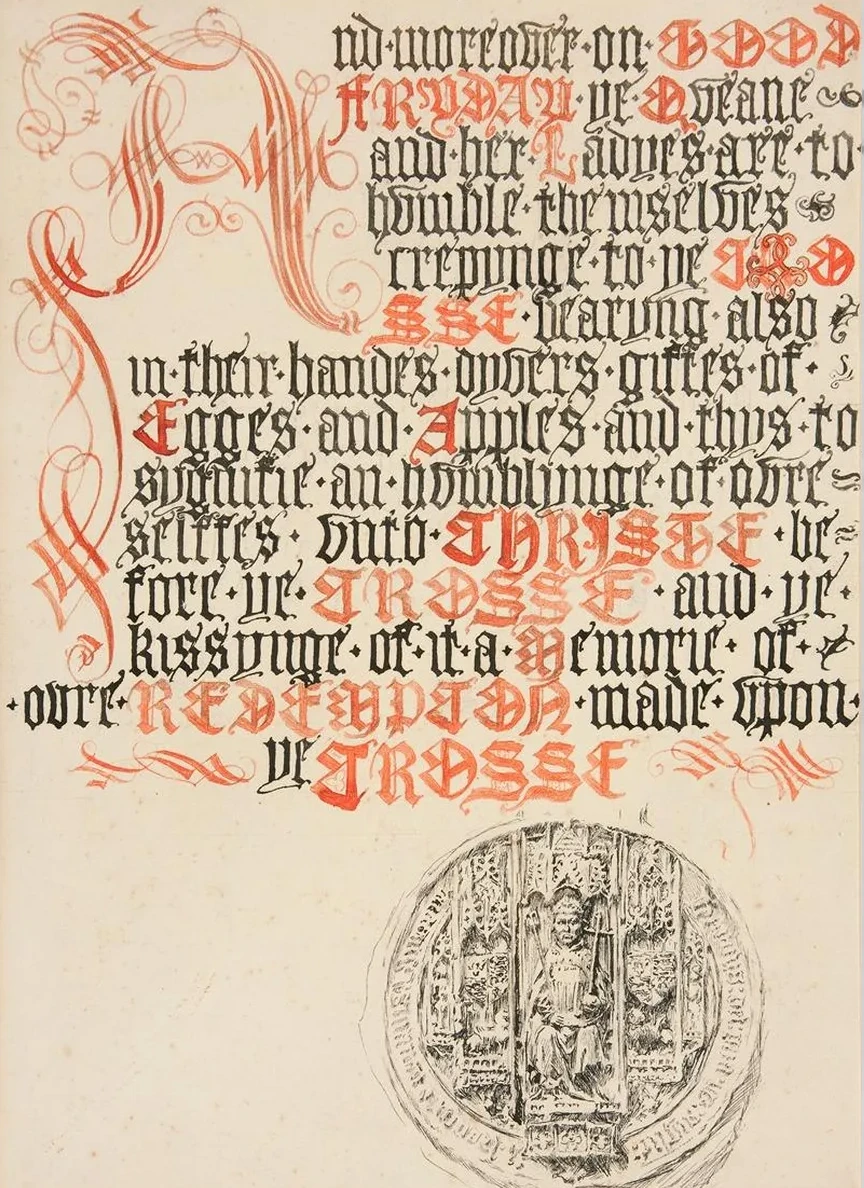 And·moreover·on·GOOD
FRYDAY·ye·Qveane
and·her·Ladyes·are·to·
hvmble·themselves
crepynge·to·ye CRO
SSE·bearyng·also
in·their·handes·dyvers·giftes·of·
Egges·and·Apples·and·thys·to
sygnifie·an·hvmblynge·of·ovre=
selffes·vnto·CHRISTE·be=
fore·ye·CROSSE·and·ye·
kissynge·of·it·a·Memorie·of·
·ovre·REDEMPCON·made·vpon·
ye CROSSE